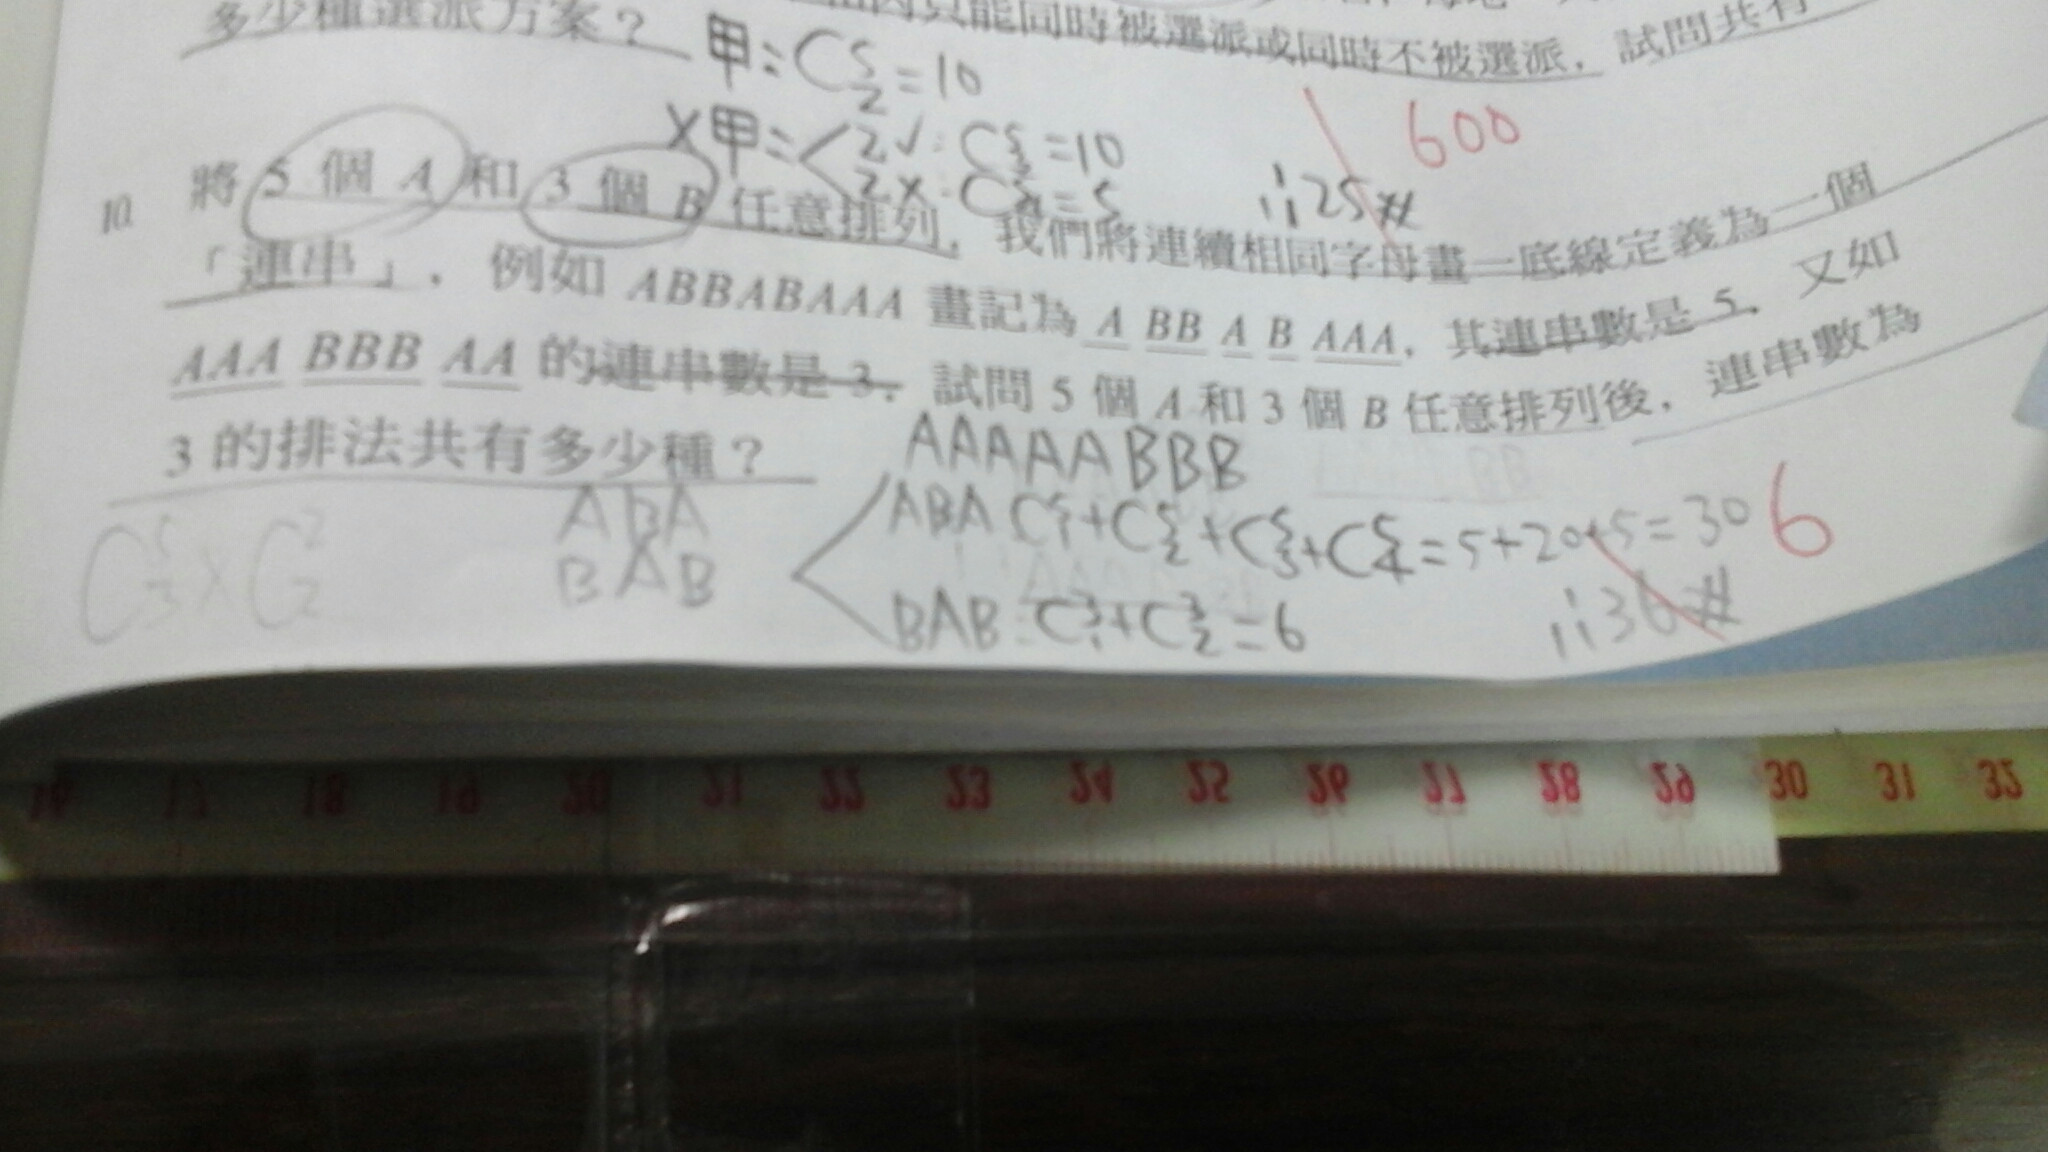 多少種選派方案？
只能同時被選派或同時不被選派，試問共有
甲：C⁵₂=10
X甲=< 2✓：C⁵₃=10
2X：=5
∴125#
600
10. 將 5 個 A 和 3 個 B 任意排列，我們將連續相同字母畫一底線定義為一個
「連串」，例如 ABBABAAA 畫記為 A BB A B AAA，其連串數是 5，又如
AAA BBB AA 的連串數是 3．試問 5 個 A 和 3 個 B 任意排列後，連串數為
3 的排法共有多少種？
AAAAABBB
C⁵₃×C²₂
ABA
BAB
ABA C⁵₁+C⁵₂+C⁵₃+C⁵₄=5+20+5=30
6
BAB：C³₁+C³₂=6
∴36#
16 17 18 19 20 21 22 23 24 25 26 27 28 29 30 31 32